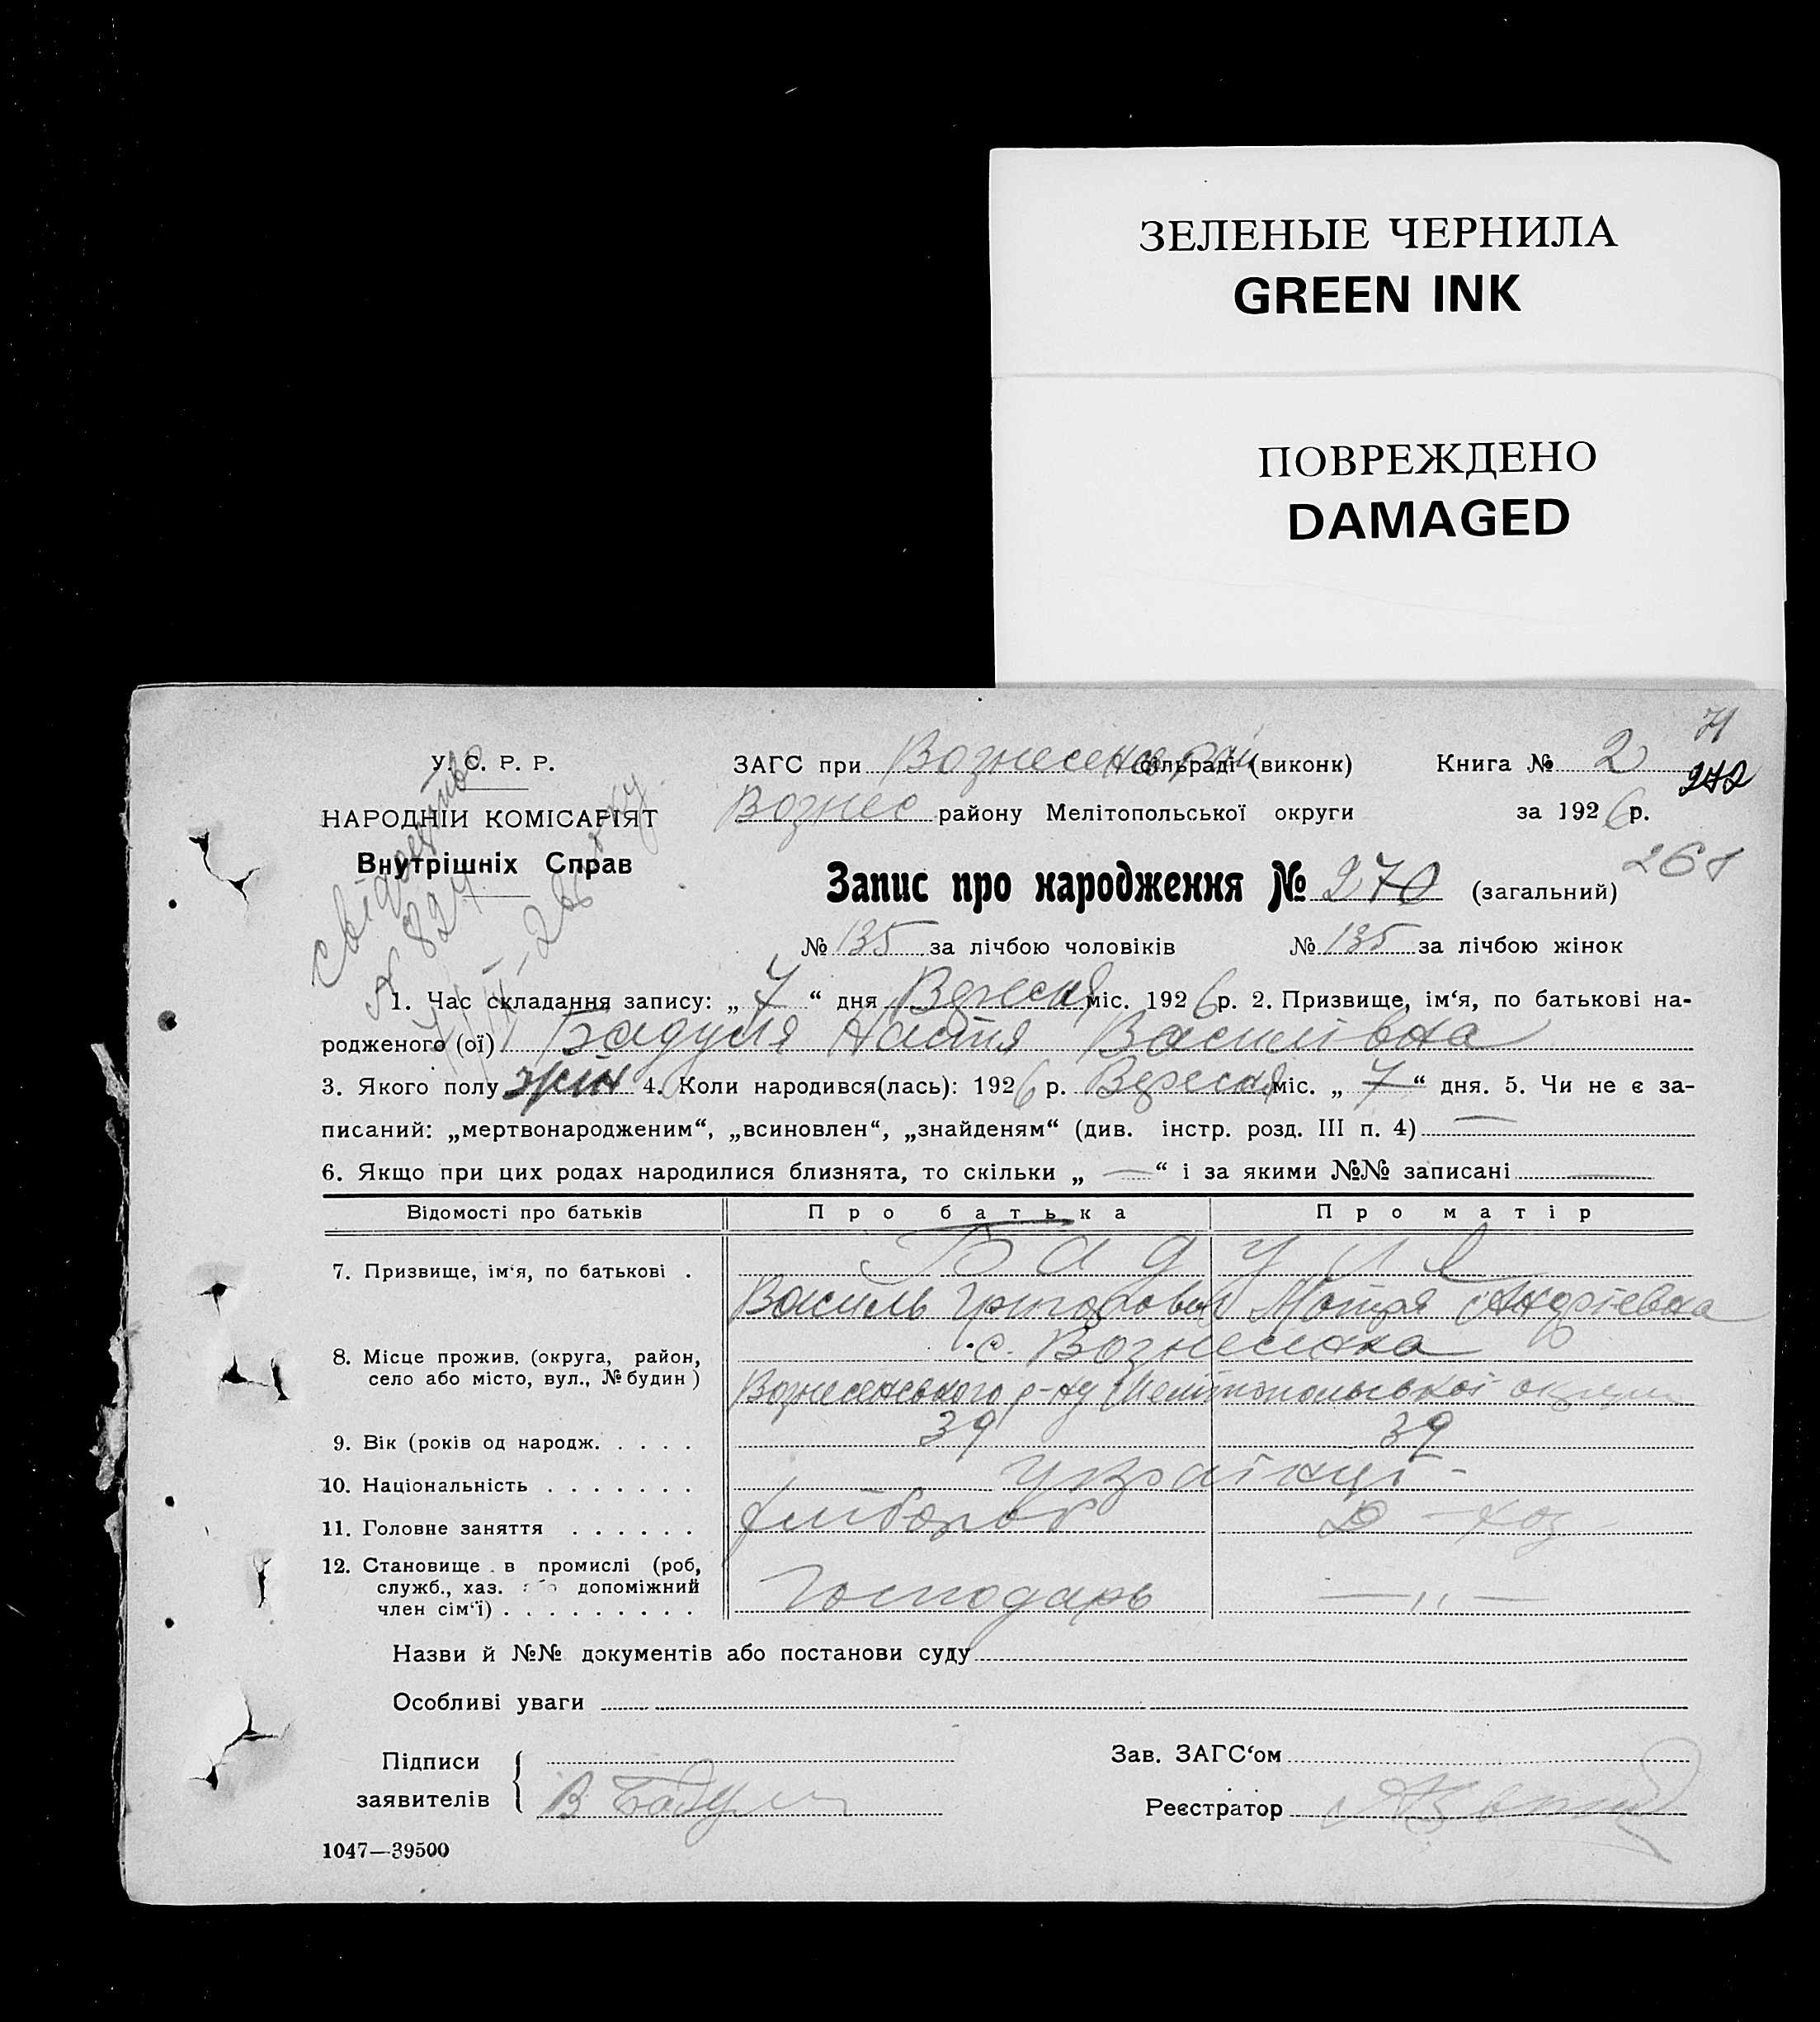 ЗЕЛЕНЫЕ ЧЕРНИЛА
GREEN INK
ПОВРЕЖДЕНО
DAMAGED
71
У. С. Р. Р.
ЗАГС при Вознесенск рай Сільраді (виконк)
Книга № 2
272
НАРОДНІЙ КОМІСАРІЯТ
Вознес району Мелітопольської округи
за 1926 р.
Внутрішніх Справ
268
Запис про народження № 270 (загальний)
свідоцтво
№ 824
№ 135 за лічбою чоловіків
№ 135 за лічбою жінок
1. Час складання запису: „ 7 “ дня Вересня міс. 1926 р. 2. Призвище, ім‘я, по батькові на-
родженого (ої) Бадуля Настя Василівна
3. Якого полу жін 4. Коли народився(лась): 1926 р. Вересня міс. „ 7 “ дня. 5. Чи не є за-
писаний: „мертвонародженим“, „всиновлен“, „знайденям“ (див. інстр. розд. III п. 4) —
6. Якщо при цих родах народилися близнята, то скільки „ — “ і за якими №№ записані —
Відомості про батьків
Про батька
Про матір
7. Призвище, ім‘я, по батькові .
Бадулі
Василь Григорович Мотря Андрієвна
8. Місце прожив. (округа, район,
село або місто, вул., № будин)
с. Вознесенка
Вознесенського р-ну Мелітопольської округи
9. Вік (років од народж. . . . .
39
39
10. Національність . . . . . . .
українці -
11. Головне заняття . . . . . .
хлібороб
Д - хоз
12. Становище в промислі (роб,
служб., хаз. або допоміжний
член сім‘ї) . . . . . . . . .
Господарь
— „ —
Назви й №№ документів або постанови суду
Особливі уваги
Підписи
заявителів
В Бадуля
Зав. ЗАГС‘ом
Реєстратор
1047—39500